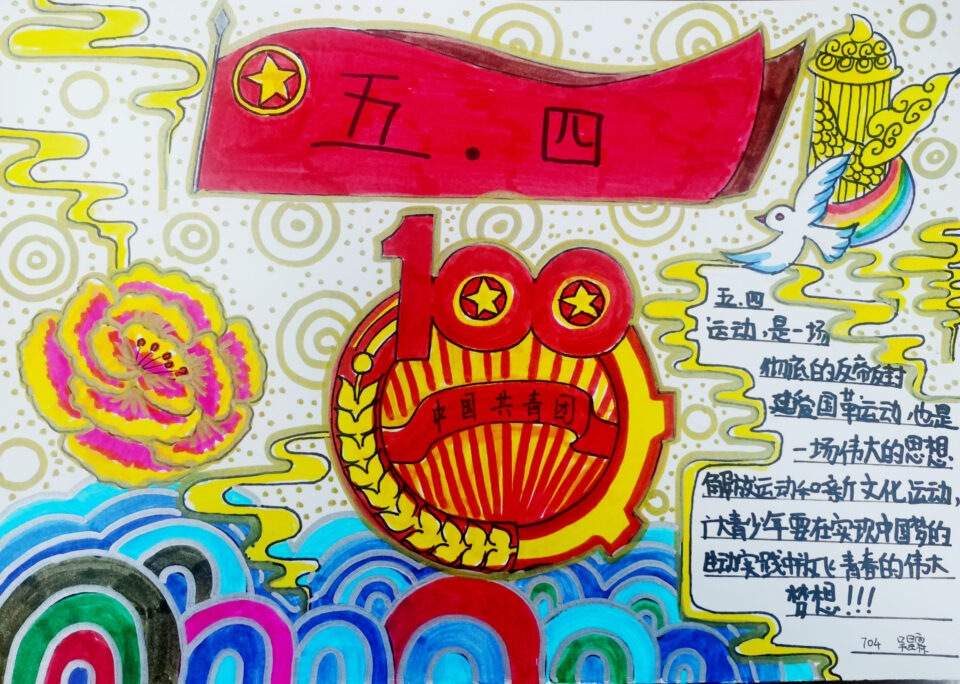 五.四
100
中国共青团
五.四
运动,是一场
彻底的反帝反封
建爱国革运动,也是
一场伟大的思想
解放运动和新文化运动,
广大青少年要在实现中国梦的
生动实践中放飞青春的伟大
梦想!!!
704